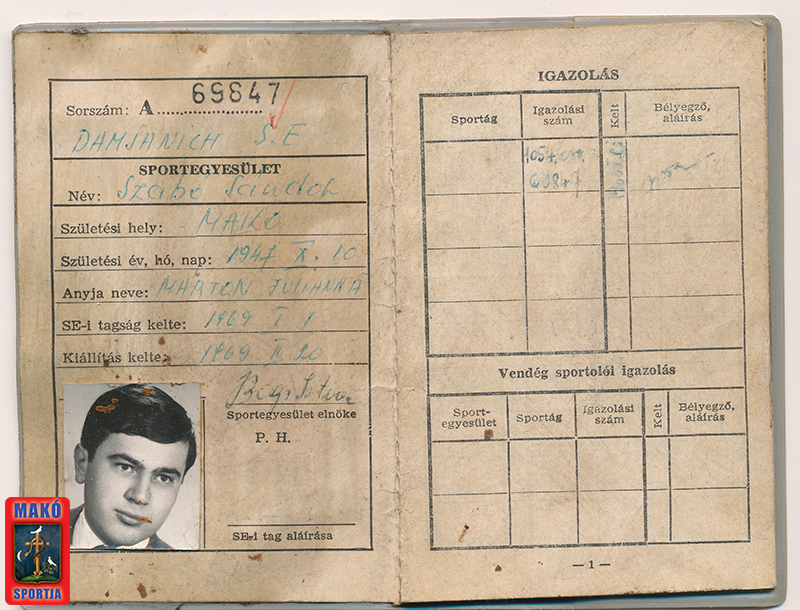 Sorszám: A 69847
DAMJANICH S.E
SPORTEGYESÜLET
Név: Szabó Sándor
Születési hely: MAKÓ
Születési év, hó, nap: 1947 X. 10
Anyja neve: MÁRTON JULIANNA
SE-i tagság kelte: 1969 I 1
Kiállítás kelte: 1969 II 20
Sportegyesület elnöke
P. H.
SE-i tag aláírása
MAKÓ
SPORTJA
IGAZOLÁS
Sportág
Igazolási
szám
Kelt
Bélyegző,
aláírás
69847
Vendég sportolói igazolás
Sport-
egyesület
Sportág
Igazolási
szám
Kelt
Bélyegző,
aláírás
— 1 —